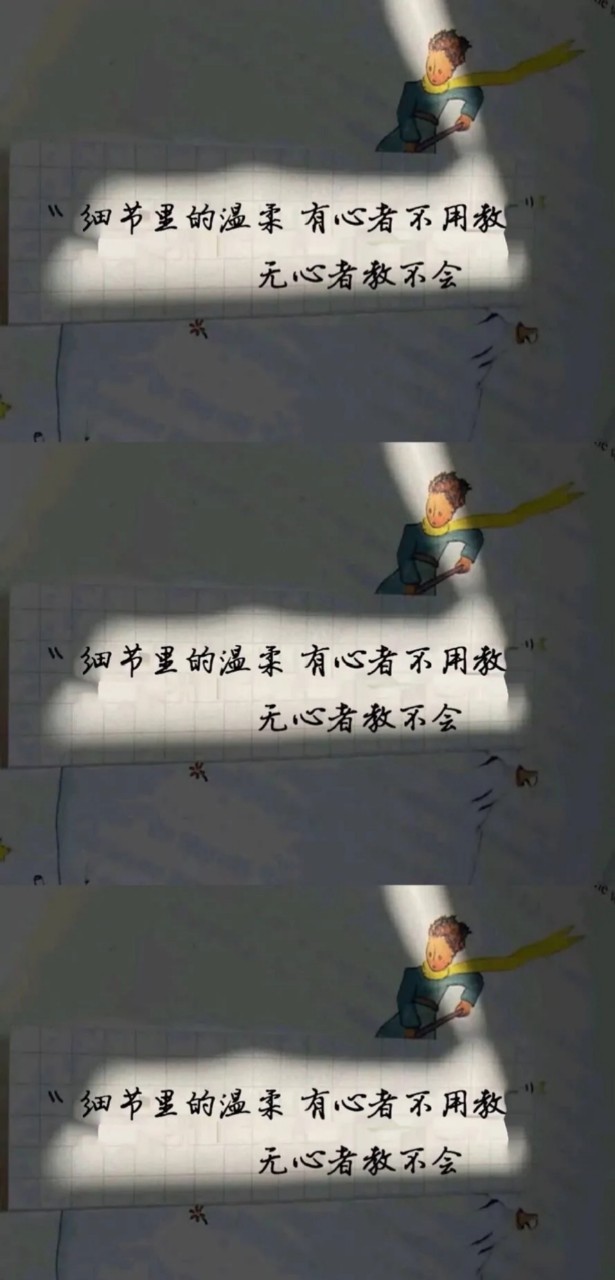 “细节里的温柔 有心者不用教”
无心者教不会
“细节里的温柔 有心者不用教”
无心者教不会
“细节里的温柔 有心者不用教”
无心者教不会